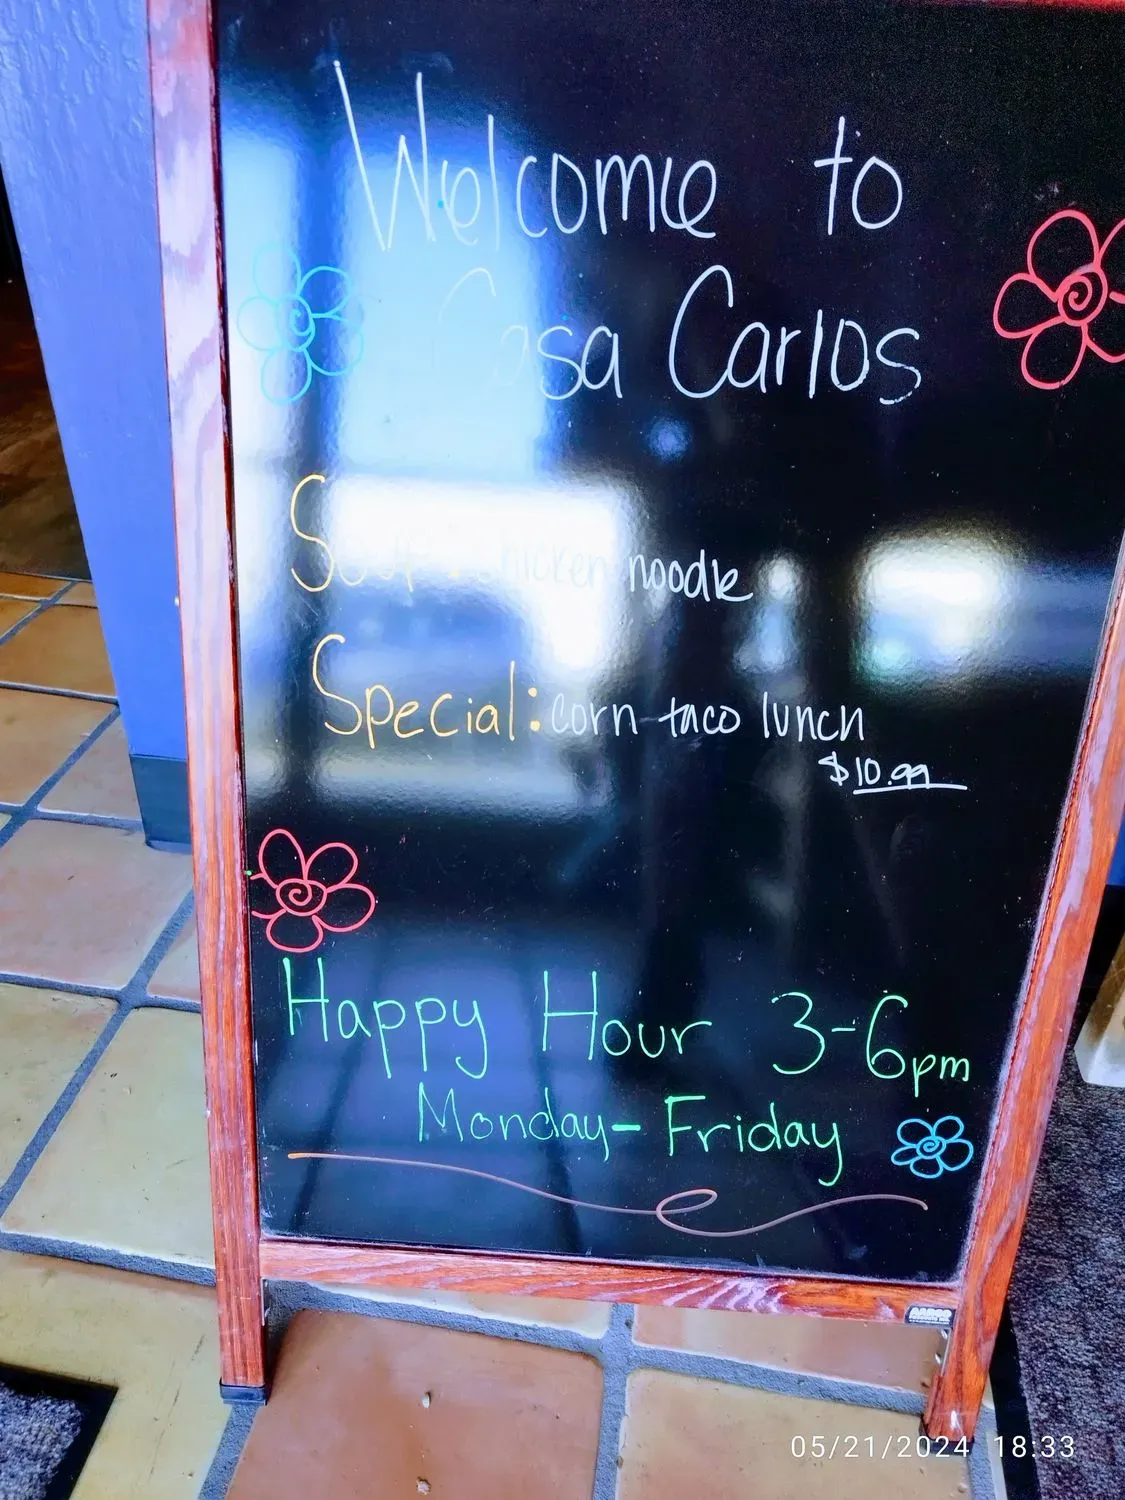 Welcome to
Casa Carlos
Soup: chicken noodle
Special: corn taco lunch
$10.99
Happy Hour 3-6pm
Monday-Friday
05/21/2024 18:33